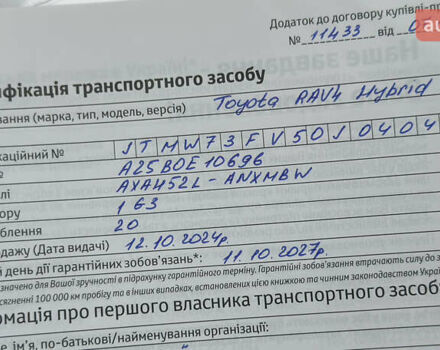 Додаток до договору купівлі-пр
№ 11433 від 05
au
фікація транспортного засобу
вання (марка, тип, модель, версія) Toyota RAV4 Hybrid
каційний № JTMW73FV50J0404
№ A25B0E10696
лі AXA452L-ANXMBW
ору 1G3
облення 20
одажу (Дата видачі) 12.10.2024р.
й день дії гарантійних зобов'язань*: 11.10.2027р.
значено для Вашої зручності в підрахунку гарантійного терміну. Гарантійні зобов'язання втрачають силу до з
сягненні 100 000 км пробігу та в інших випадках, встановлених цією книжкою та чинним законодавством Украї
рмація про першого власника транспортного засоб
е, ім'я, по-батькові/найменування організації: